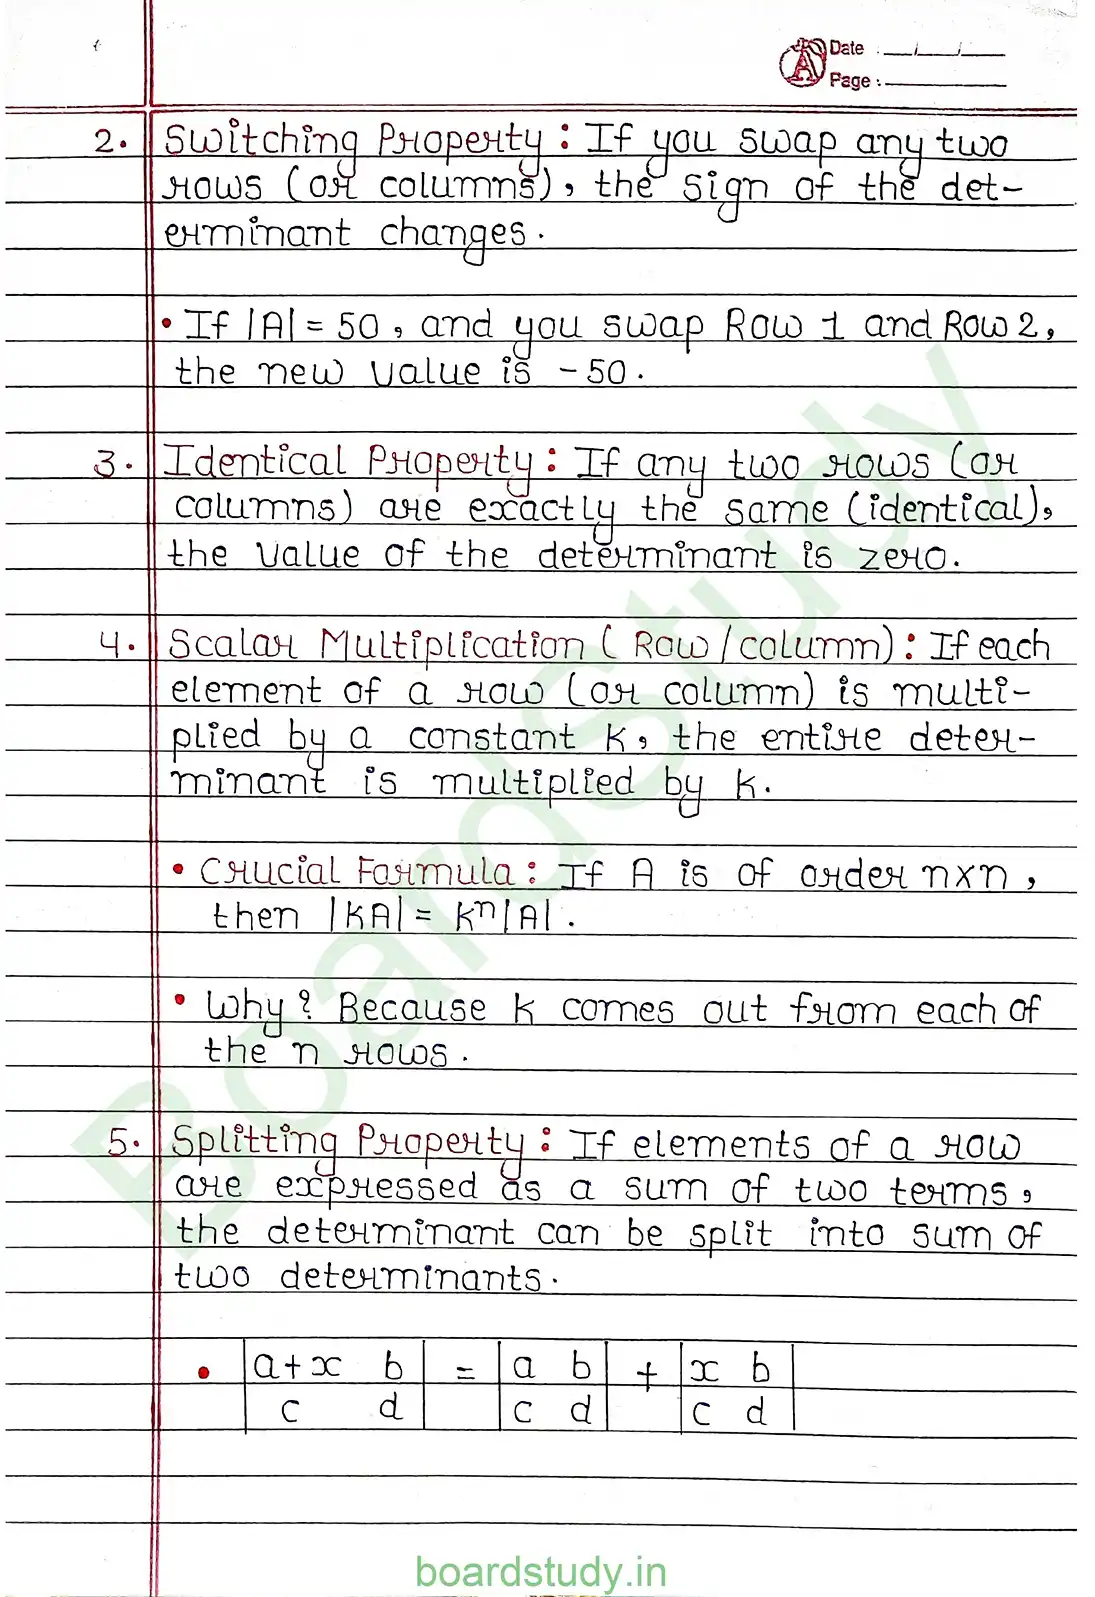 Date : __/__/__
Page :
2. Switching Property : If you swap any two
rows (or columns), the sign of the det-
erminant changes.
• If |A| = 50, and you swap Row 1 and Row 2,
the new value is -50.
3. Identical Property : If any two rows (or
columns) are exactly the same (identical),
the value of the determinant is zero.
4. Scalar Multiplication ( Row / column) : If each
element of a row (or column) is multi-
plied by a constant k, the entire deter-
minant is multiplied by k.
• Crucial Formula : If A is of order n×n,
then |KA| = Kⁿ|A|.
• Why? Because k comes out from each of
the n rows.
5. Splitting Property : If elements of a row
are expressed as a sum of two terms,
the determinant can be split into sum of
two determinants.
• |a+x b| = |a b| + |x b|
|c d| |c d| |c d|
BoardStudy
boardstudy.in